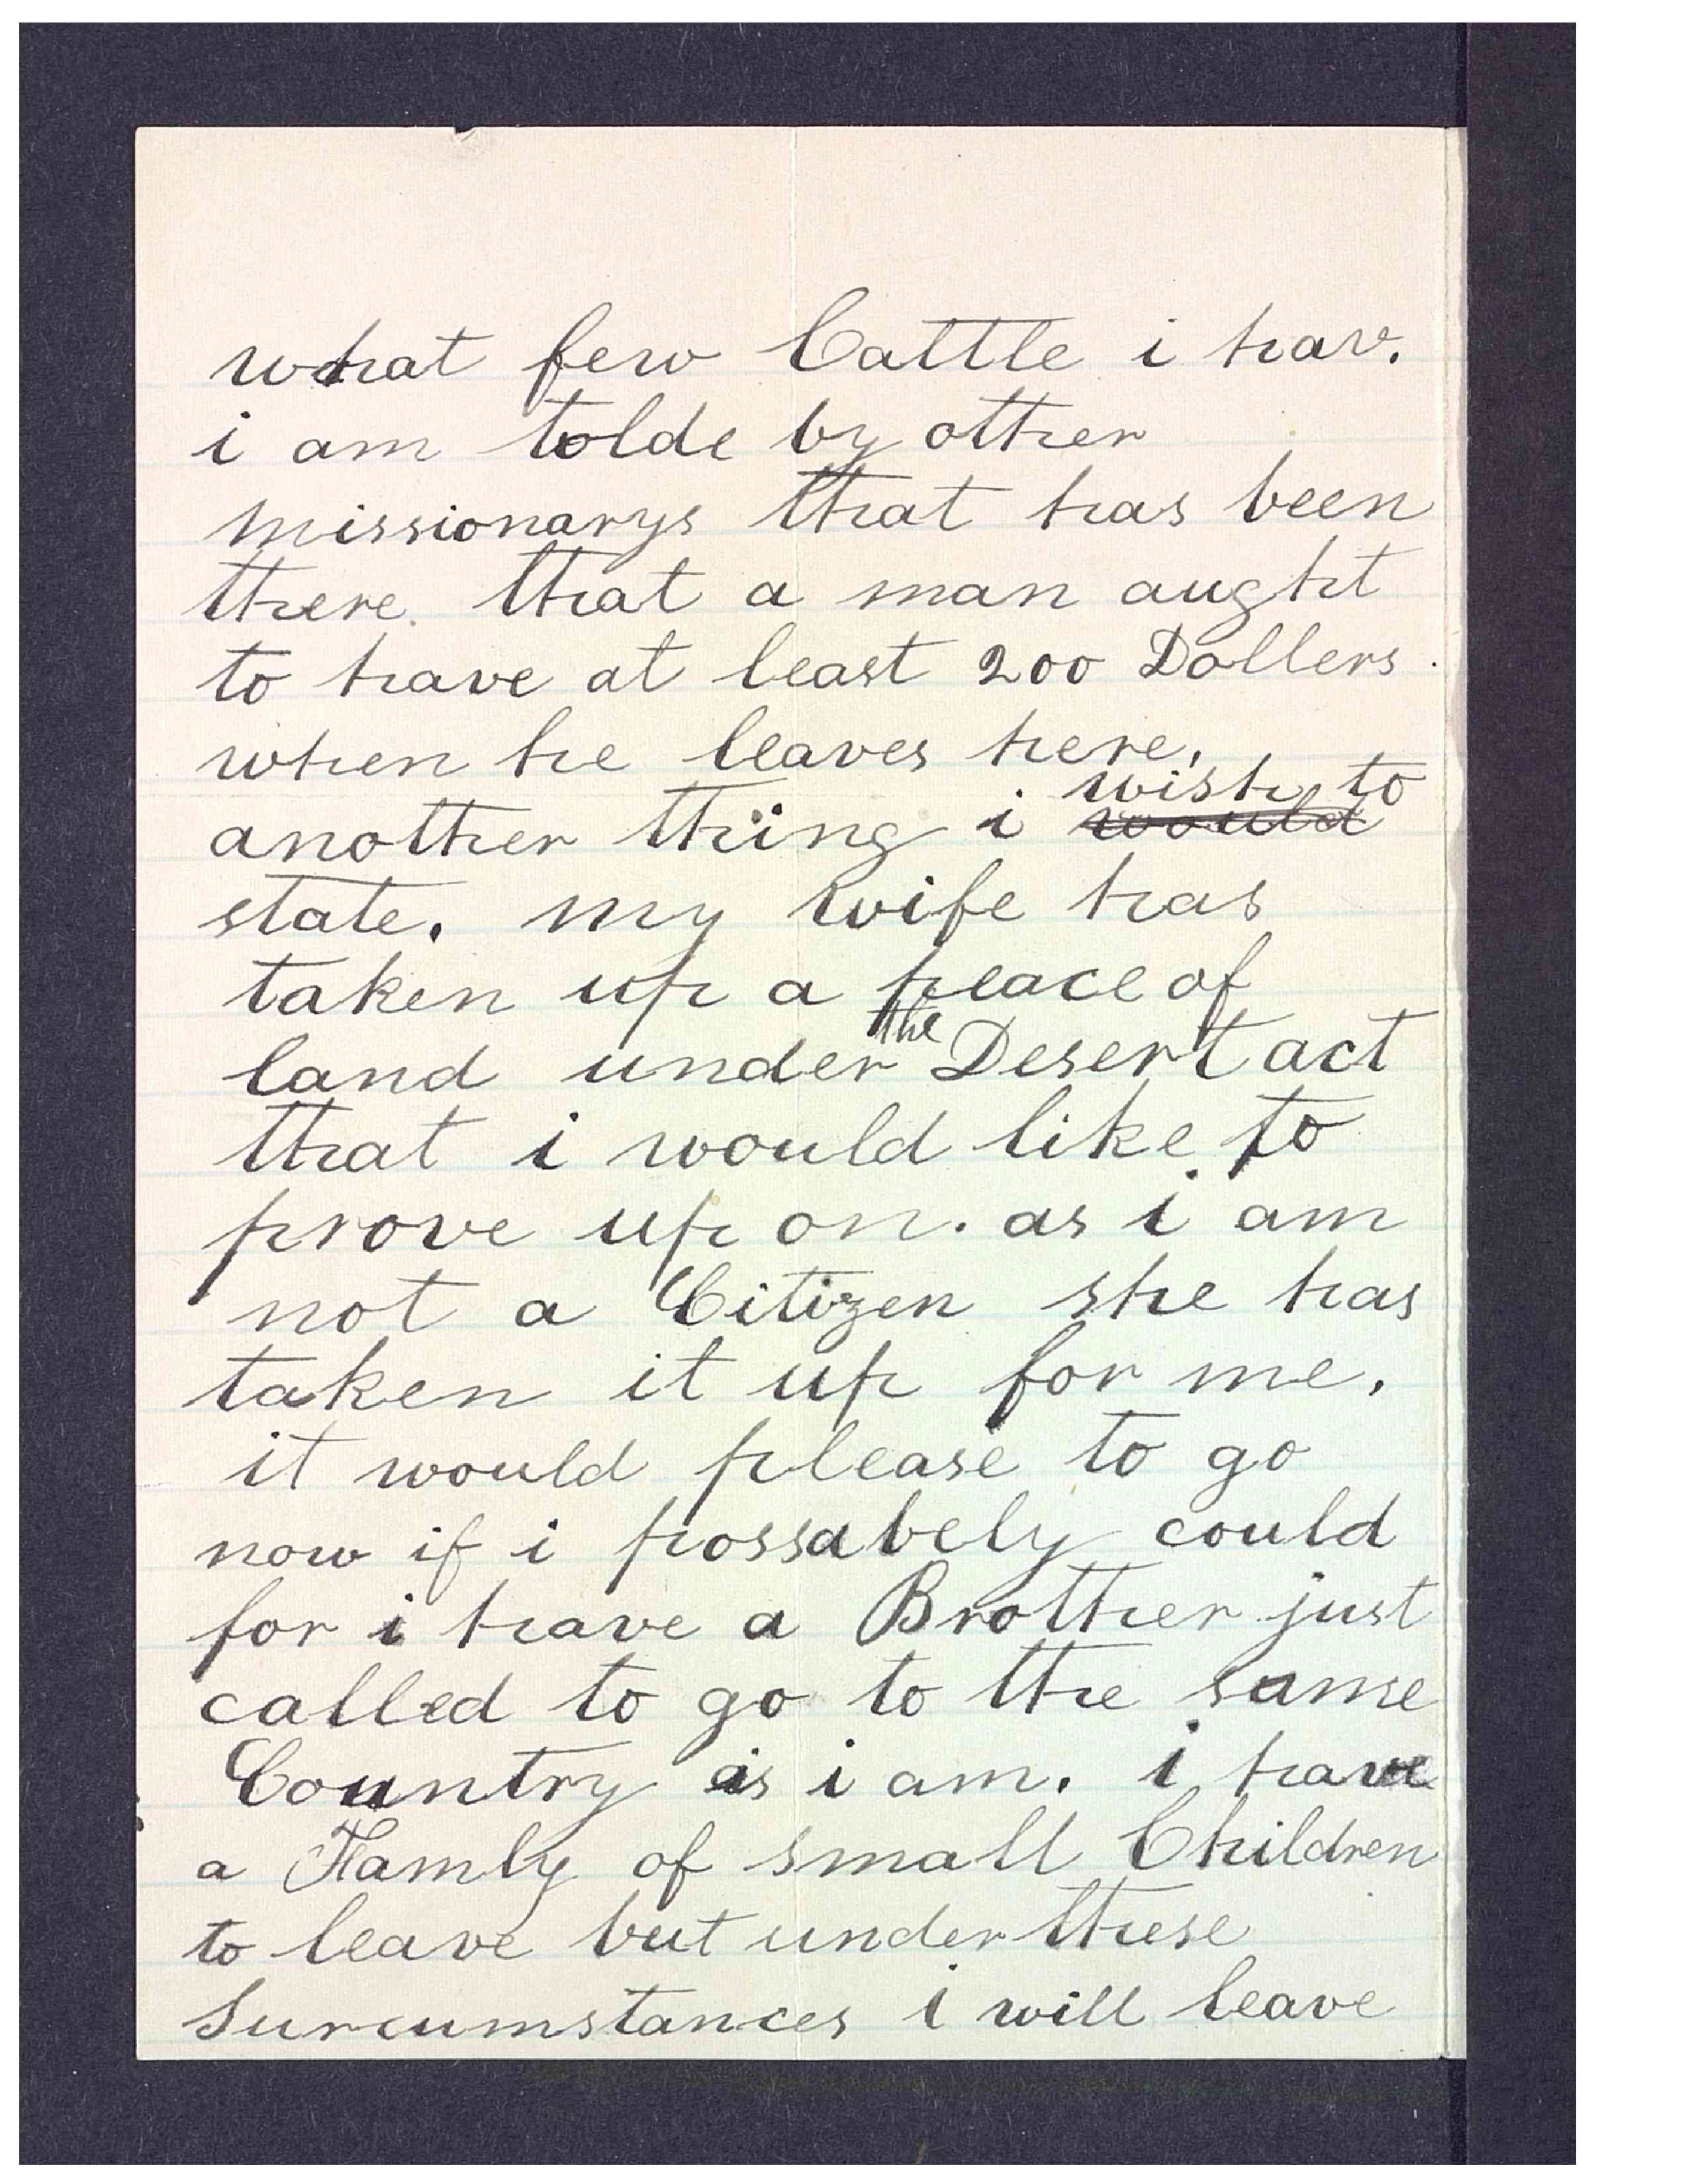 what few Cattle i hav.
i am tolde by other
missionarys that has been
there. that a man aught
to have at least 200 Dollers.
when he leaves here.
another thing i ~~would~~ wish to
state. my wife has
taken up a peace of
land under the Desert act
that i would like to
prove up on. as i am
not a Citizen she has
taken it up for me.
it would please to go
now if i possabely could
for i have a Brother just
called to go to the same
Country as i am. i have
a Famly of small Children
to leave but under these
Surcumstances i will leave